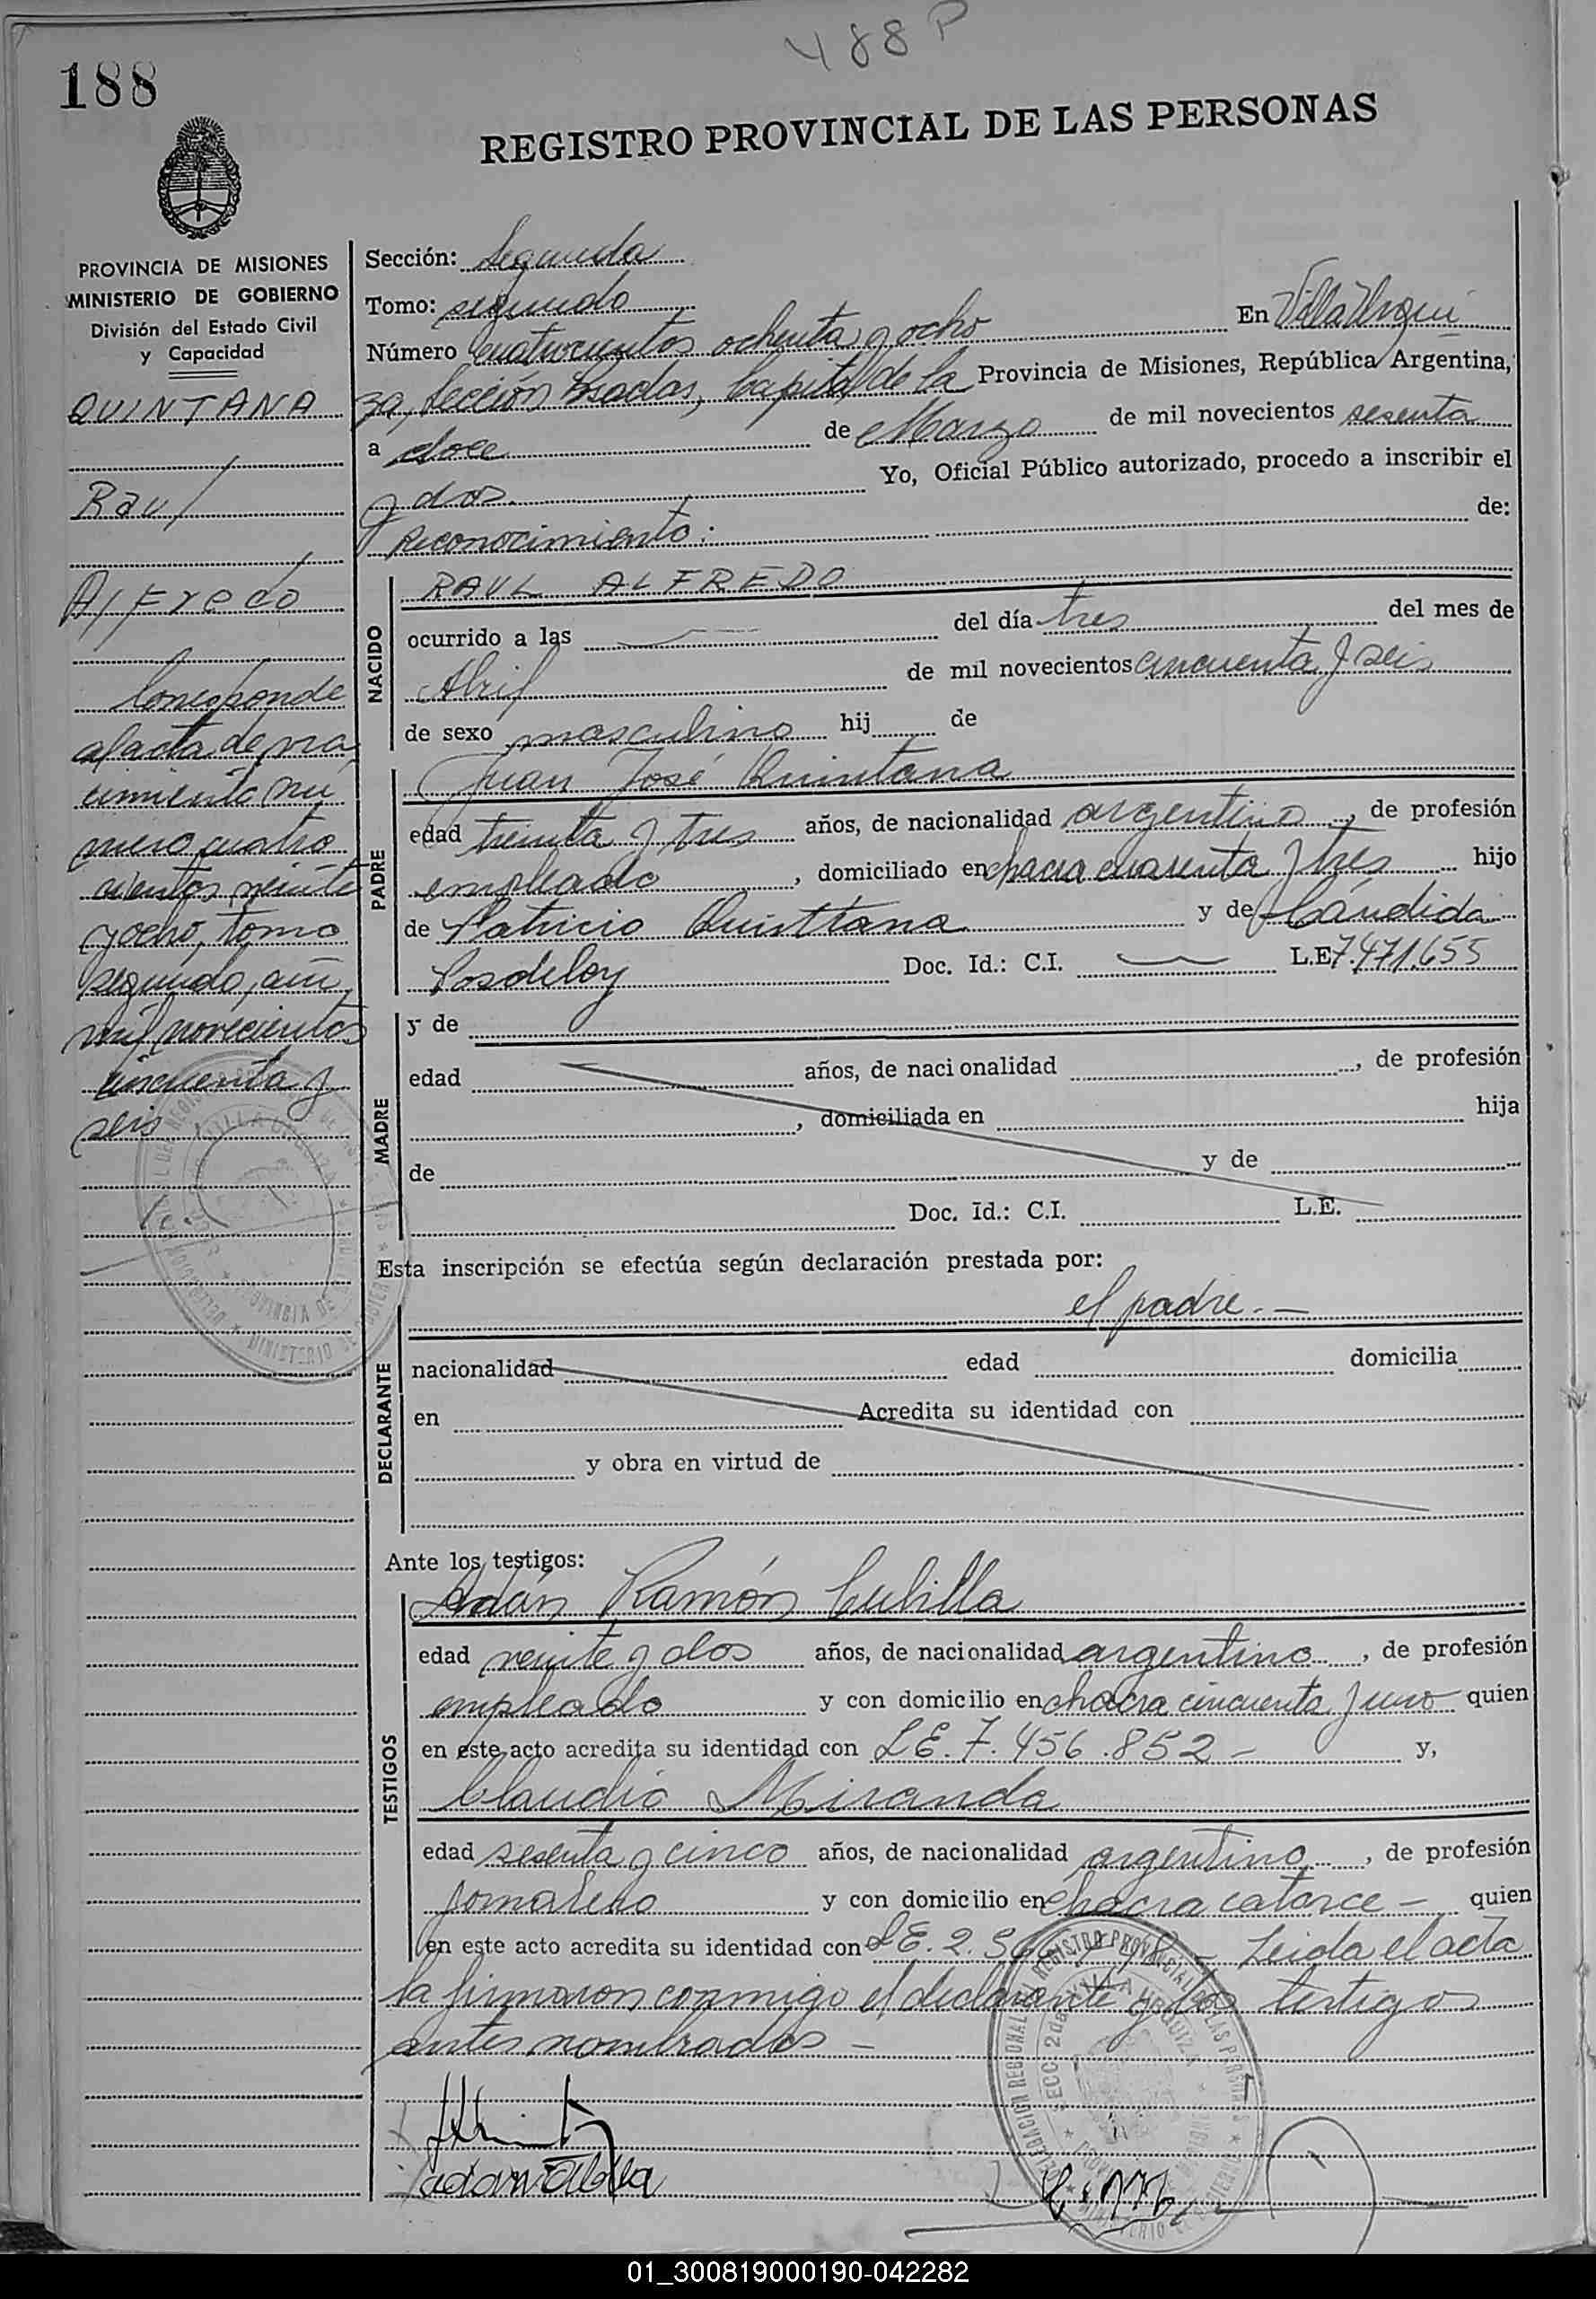 488 P
188
REGISTRO PROVINCIAL DE LAS PERSONAS
PROVINCIA DE MISIONES
MINISTERIO DE GOBIERNO
División del Estado Civil
y Capacidad
QUINTANA
Raul
Alfredo
Corresponde
al acta de na
cimiento nú
mero cuatro
cientos veinte
y ocho, tomo
segundo, año
mil novecientos
cincuenta y
seis
Sección: Segunda
Tomo: segundo
Número Cuatrocientos ochenta y ocho En Villa Urqui
za, Sección Posadas, Capital de la Provincia de Misiones, República Argentina,
a doce de Marzo de mil novecientos sesenta
y dos. Yo, Oficial Público autorizado, procedo a inscribir el
reconocimiento: de:
NACIDO
RAUL ALFREDO
ocurrido a las del día tres del mes de
Abril de mil novecientos cincuenta y seis
de sexo masculino hij de
PADRE
Juan José Quintana
edad treinta y tres años, de nacionalidad argentino, de profesión
empleado, domiciliado en chacra cuarenta y tres hijo
de Patricio Quinttana y de Cándida
Doc. Id.: C.I. L.E. 7.471.655
MADRE
y de
edad años, de naci onalidad , de profesión
, domiciliada en hija
de y de
Doc. Id.: C.I. L.E.
Esta inscripción se efectúa según declaración prestada por:
el padre.—
DECLARANTE
nacionalidad edad domicilia
en Acredita su identidad con
y obra en virtud de
Ante los testigos:
TESTIGOS
Adán Ramón Cubilla
edad veinte y dos años, de nacionalidad argentino, de profesión
empleado y con domicilio en chacra cincuenta y uno quien
en este acto acredita su identidad con L.E. 7.456.852 — y,
Claudio Miranda
edad sesenta y cinco años, de nacionalidad argentino, de profesión
jornalero y con domicilio en chacra catorce — quien
en este acto acredita su identidad con L.E. 2.5 — Leida el acta
la firmaron conmigo el declarante y los testigos
antes nombrados —
01_300819000190-042282